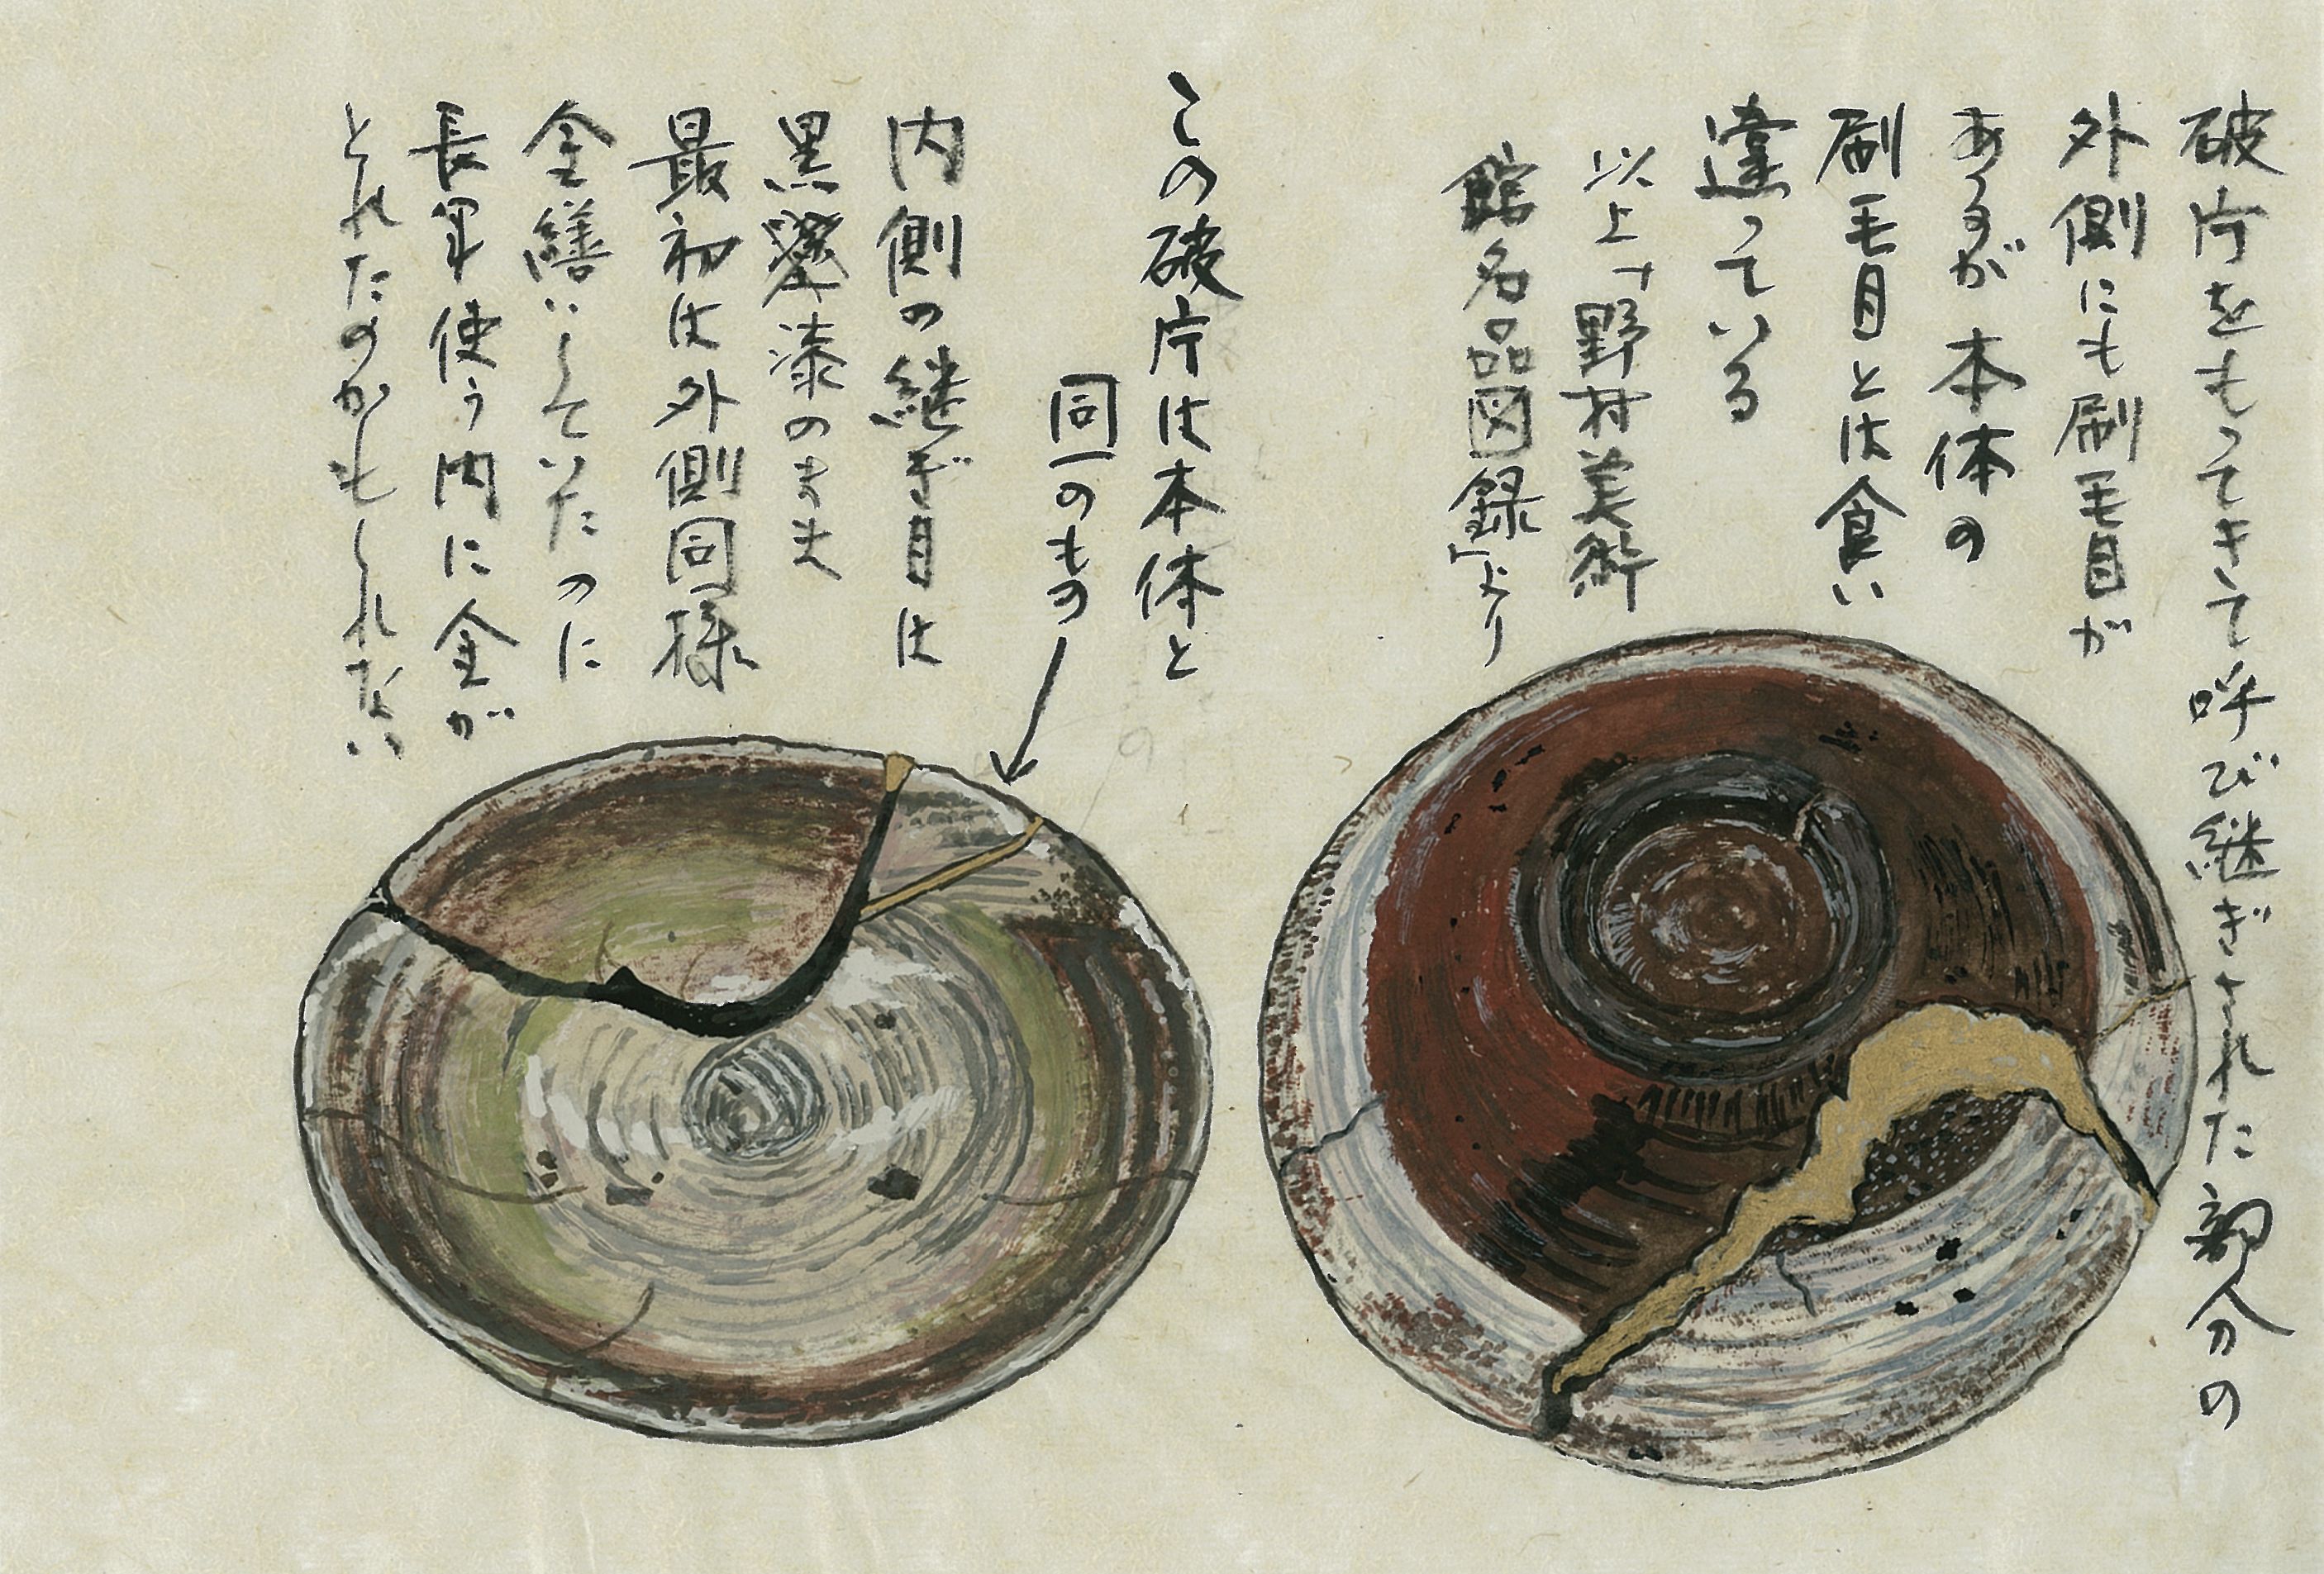 破片をもってきて呼び継ぎされた部分の
外側にも刷毛目が
あるが本体の
刷毛目とは食い
違っている
以上「野村美術
館名品図録」より
この破片は本体と
同一のもの
内側の継ぎ目は
黒漆のまま
最初は外側同様
金繕いしていたのに
長年使う内に金が
とれたのかもしれない